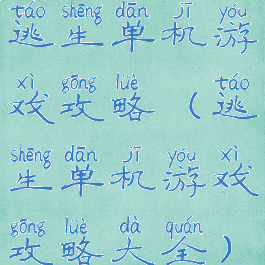 táo shēng dān jī yóu
逃生单机游
xì gōng lüè táo
戏攻略（逃
shēng dān jī yóu xì
生单机游戏
gōng lüè dà quán
攻略大全）